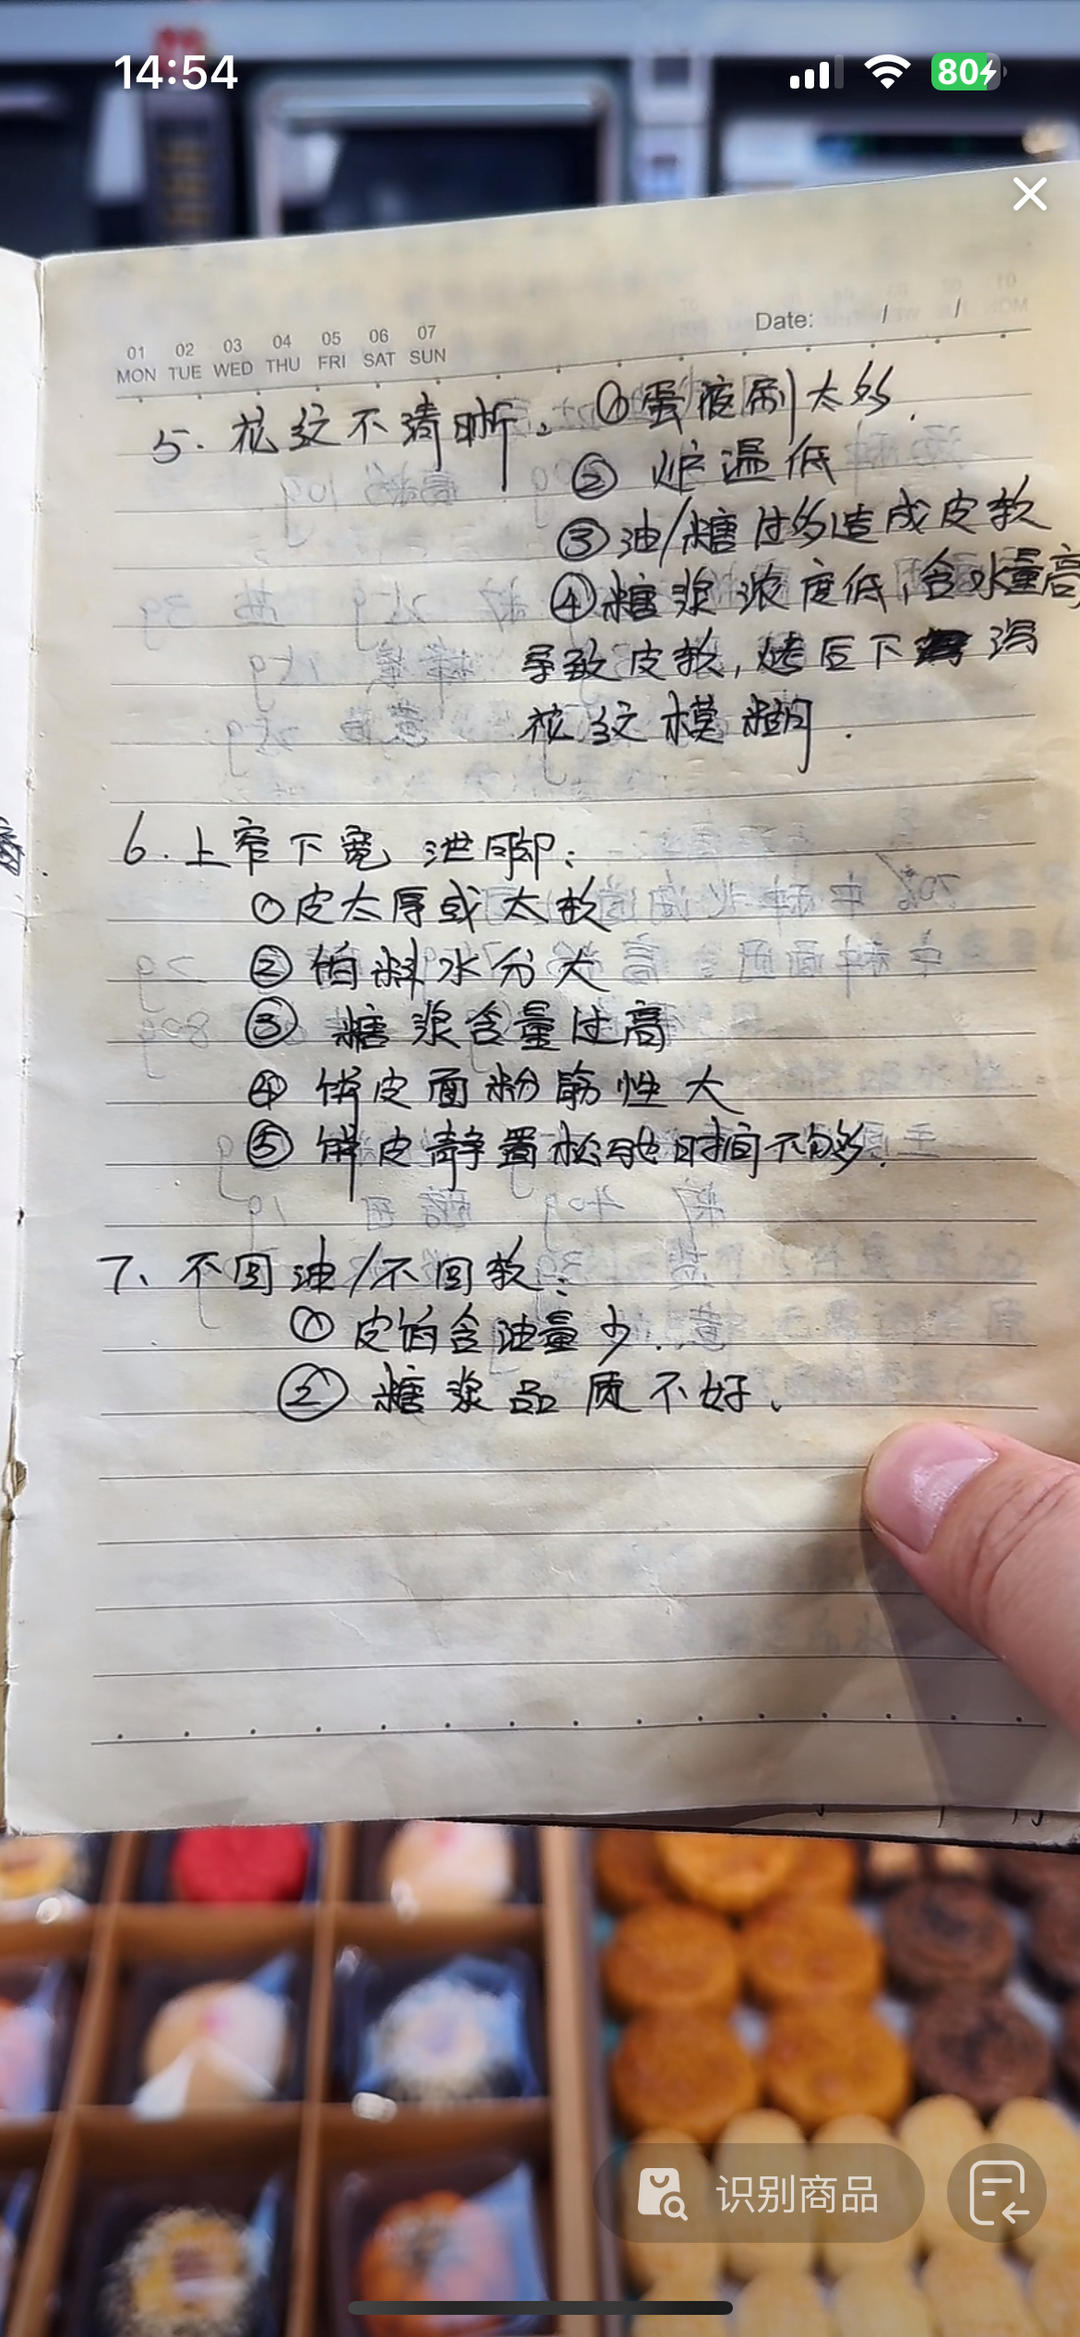 14:54
80
01 02 03 04 05 06 07
MON TUE WED THU FRI SAT SUN
Date: / /
5. 花纹不清晰、①蛋液刷太多.
② 炉温低
③油/糖过多造成皮软
④糖浆浓度低,含水量高
导致皮软,烤后下泻
花纹模糊.
6.上窄下宽 泄脚:
①皮太厚或太软
②馅料水分大
③ 糖浆含量过高
④ 饼皮面粉筋性大
⑤ 饼皮静置松驰时间不够.
7、不回油/不回软:
① 皮馅含油量少.
② 糖浆品质不好、
识别商品